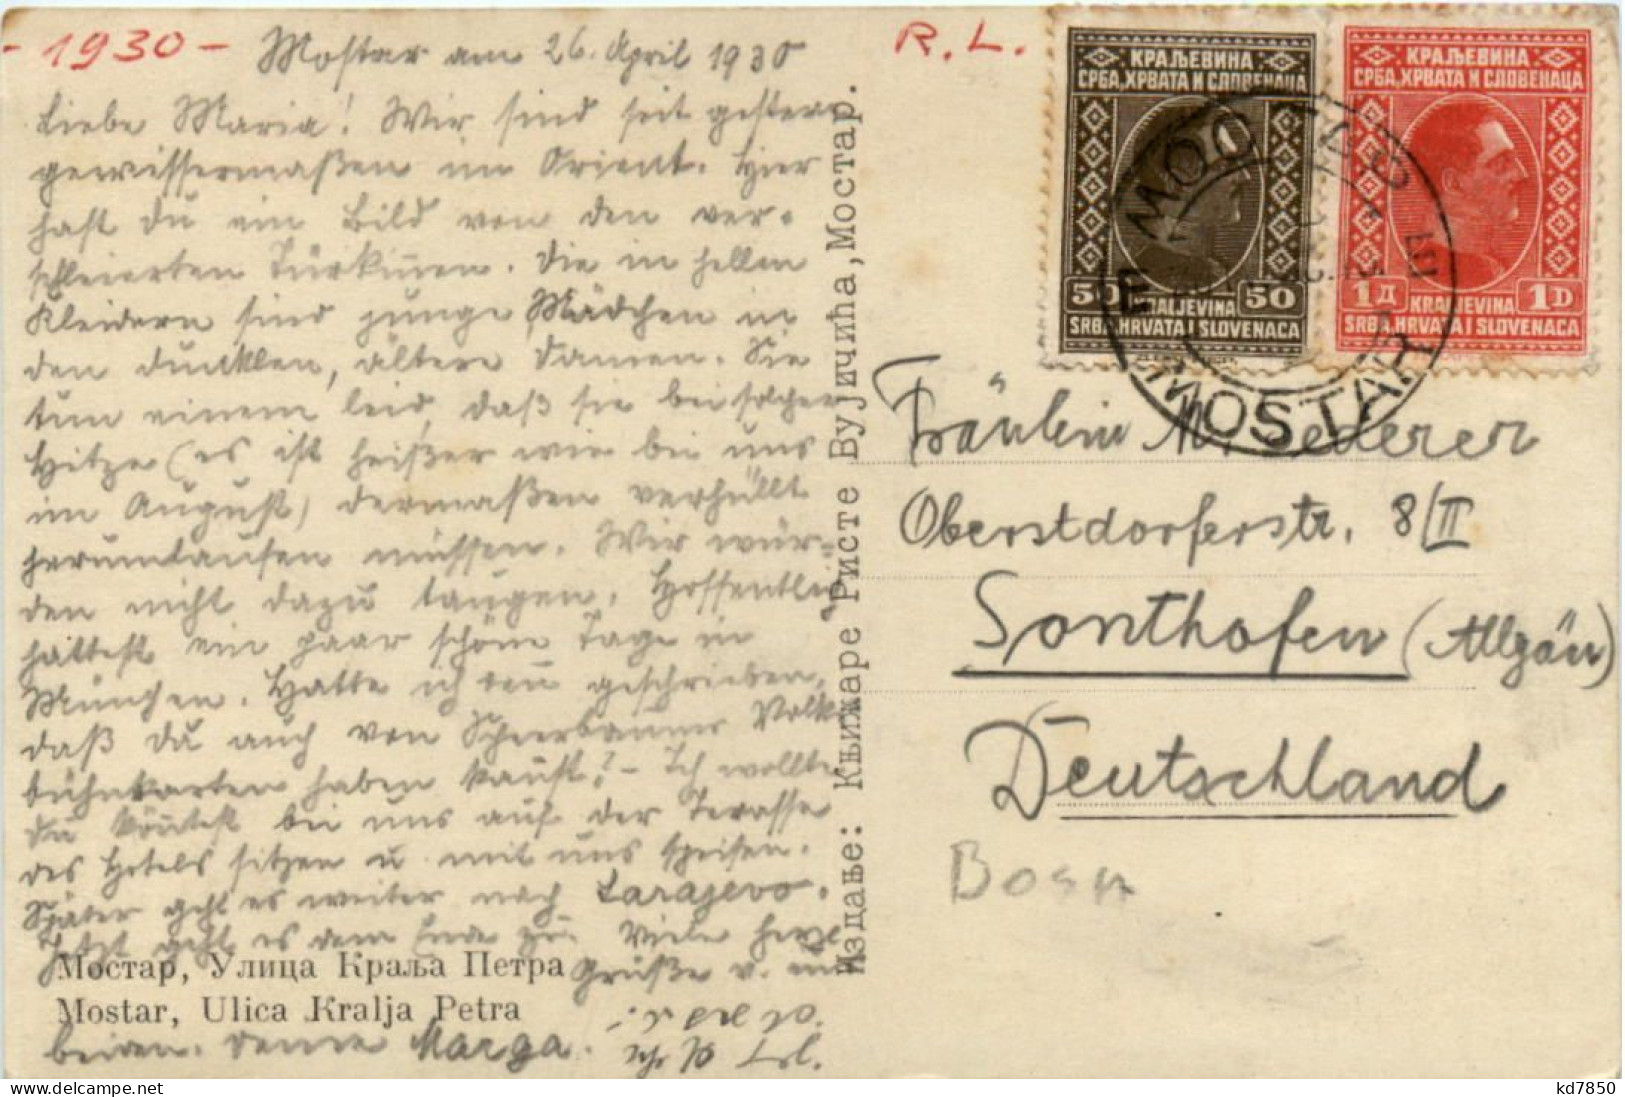 - 1930 -
Mostar am 26. April 1930
R. L.
Liebe Maria! Wir sind seit gestern
gewissermaßen im Orient. Hier
hast du ein Bild von den ver-
schleierten Türkinen. Die in hellen
Kleidern sind junge Mädchen in
den dunklen, ältere Damen. Sie
tun einem leid, daß sie bei solcher
Hitze (es ist heißer wie bei uns
im August) dermaßen verhüllt
herumlaufen müssen. Wir wür-
den nicht dazu taugen. Hoffentlich
hattest ein paar schöne Tage in
München. Hatte ich geschrieben,
daß du auch von Volks
bühnkarten haben kaust? - Ich wollte
du könntest bei uns auf der Terasse
des Hotels sitzen u. mit uns speisen.
Später geht es weiter nach Sarajevo.
Jetzt geht es dem Ende zu. Viele herzl
Grüße v. uns
beiden. Deine Marga.
Мостар, Улица Краља Петра
Mostar, Ulica Kralja Petra
Издање: Књижаре Ристе Вујичића, Мостар.
КРАЉЕВИНА
СРБА, ХРВАТА И СЛОВЕНАЦА
50 50
KRALJEVINA
SRBA, HRVATA I SLOVENACA
КРАЉЕВИНА
СРБА, ХРВАТА И СЛОВЕНАЦА
1Д 1D
KRALJEVINA
SRBA, HRVATA I SLOVENACA
MOSTAR
Fräulein M. Lederer
Oberstdorferstr. 8/II
Sonthofen (Allgäu)
Deutschland
Bosn
kd7850